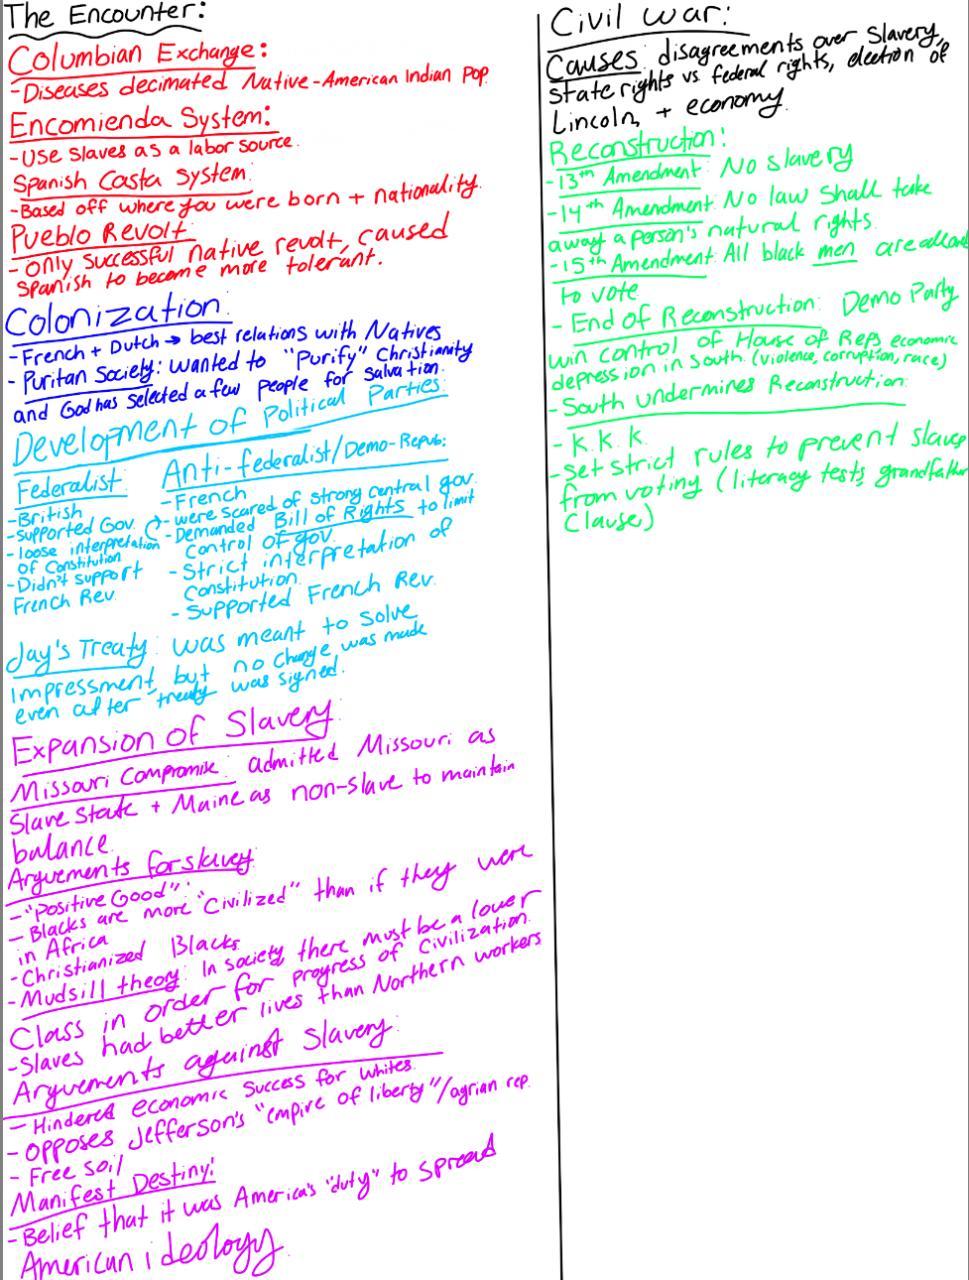 The Encounter:
Columbian Exchange:
-Diseases decimated Native-American Indian Pop
Encomienda System:
-Use slaves as a labor source.
Spanish Casta System:
-Based off where you were born + nationality.
Pueblo Revolt:
- only successful Native revolt, caused
Spanish to become more tolerant.
Colonization:
-French + Dutch → best relations with Natives
- Puritan Society: wanted to "Purify" Christianity
and God has selected a few people for salvation.
Development of Political Parties:
Federalist:
-British
-Supported Gov.
- loose interpretation
of Constitution
-Didn't support
French Rev.
Anti-federalist/Demo-Repub:
-French
- were scared of strong central gov.
-Demanded Bill of Rights to limit
control of gov.
- Strict interpretation of
Constitution.
- Supported French Rev.
Jay's Treaty: was meant to solve
Impressment, but no change was made
even after treaty was signed.
Expansion of Slavery:
Missouri Compromise: admitted Missouri as
Slave State + Maine as non-slave to maintain
balance
Arguements for slavery
-"Positive Good":
- Blacks are more "Civilized" than if they were
in Africa
-Christianized Blacks
-Mudsill theory: In society, there must be a lower
Class in order for progress of Civilization.
-Slaves had better lives than Northern workers
Arguements against Slavery:
- Hindered economic success for whites.
- Opposes Jefferson's "empire of liberty"/agrian rep.
- Free soil
Manifest Destiny:
-Belief that it was America's "duty" to spread
American ideology.
Civil war:
Causes: disagreements over Slavery,
State rights vs. federal rights, election of
Lincoln, + economy.
Reconstruction:
-13th Amendment: No slavery
-14th Amendment: No law shall take
away a person's natural rights.
-15th Amendment: All black men are
to vote
- End of Reconstruction: Demo Party
win control of House of Reps, economic
depression in South. (violence, corruption, race)
-South undermines Reconstruction:
- K.K.K.
-Set strict rules to prevent slaves
from voting (literacy tests, grandfather
Clause)